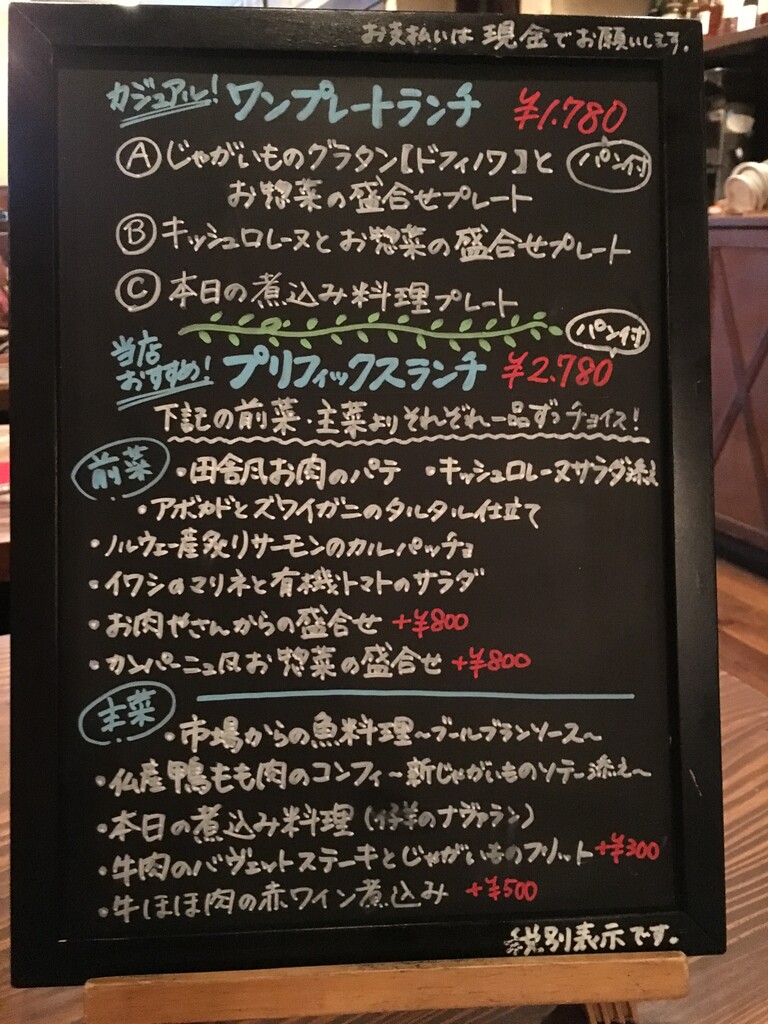 お支払いは現金でお願いします。
カジュアル! ワンプレートランチ ¥1.780
Ⓐじゃがいものグラタン【ドフィノワ】と パン付
お惣菜の盛合せプレート
Ⓑキッシュロレーヌとお惣菜の盛合せプレート
Ⓒ本日の煮込み料理プレート
パン付
当店おすすめ! プリフィックスランチ ¥2.780
下記の前菜・主菜よりそれぞれ一品ずつチョイス!
前菜 ・田舎風お肉のパテ ・キッシュロレーヌサラダ添え
・アボカドとズワイガニのタルタル仕立て
・ノルウェー産炙りサーモンのカルパッチョ
・イワシのマリネと有機トマトのサラダ
・お肉やさんからの盛合せ +¥800
・カンパーニュ風お惣菜の盛合せ +¥800
主菜 ・市場からの魚料理～ブールブランソース～
・仏産鴨もも肉のコンフィ～新じゃがいものソテー添え～
・本日の煮込み料理(仔羊のナヴァラン)
・牛肉のバヴェットステーキとじゃがいものフリット +¥300
・牛ほほ肉の赤ワイン煮込み +¥500
税別表示です。